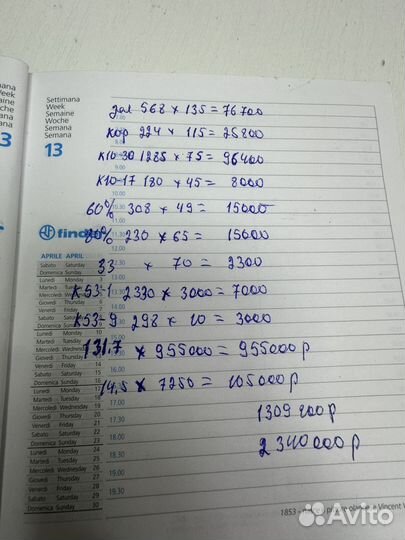 Settimana
Week
Semaine
Woche
Semana
Semana
13
зал 568 × 135 = 76700
кор 224 × 115 = 25800
К10-30 1285 × 75 = 96400
К10-17 180 × 45 = 8000
60% 308 × 49 = 15000
80% 230 × 65 = 15000
33 × 70 = 2300
К53-1 2330 × 3000 = 7000
К53-9 298 × 10 = 3000
131.7 × 955000 = 955000 р
14.5 × 7250 = 105000 р
1309200 р
2340000 р
finder
APRILE APRIL
Sabato Saturday 1
Domenica Sunday 2
Lunedì Monday 3
Martedì Tuesday 4
Mercoledì Wednesday 5
Giovedì Thursday 6
Venerdì Friday 7
Sabato Saturday 8
Domenica Sunday 9
Lunedì Monday 10
Martedì Tuesday 11
Mercoledì Wednesday 12
Giovedì Thursday 13
Venerdì Friday 14
Sabato Saturday 15
Domenica Sunday 16
Lunedì Monday 17
Martedì Tuesday 18
Mercoledì Wednesday 19
Giovedì Thursday 20
Venerdì Friday 21
Sabato Saturday 22
Domenica Sunday 23
Lunedì Monday 24
Martedì Tuesday 25
Mercoledì Wednesday 26
Giovedì Thursday 27
Venerdì Friday 28
Sabato Saturday 29
Domenica Sunday 30
17.00
17.30
18.00
18.30
19.00
19.30
1853 -
Vincent
Avito